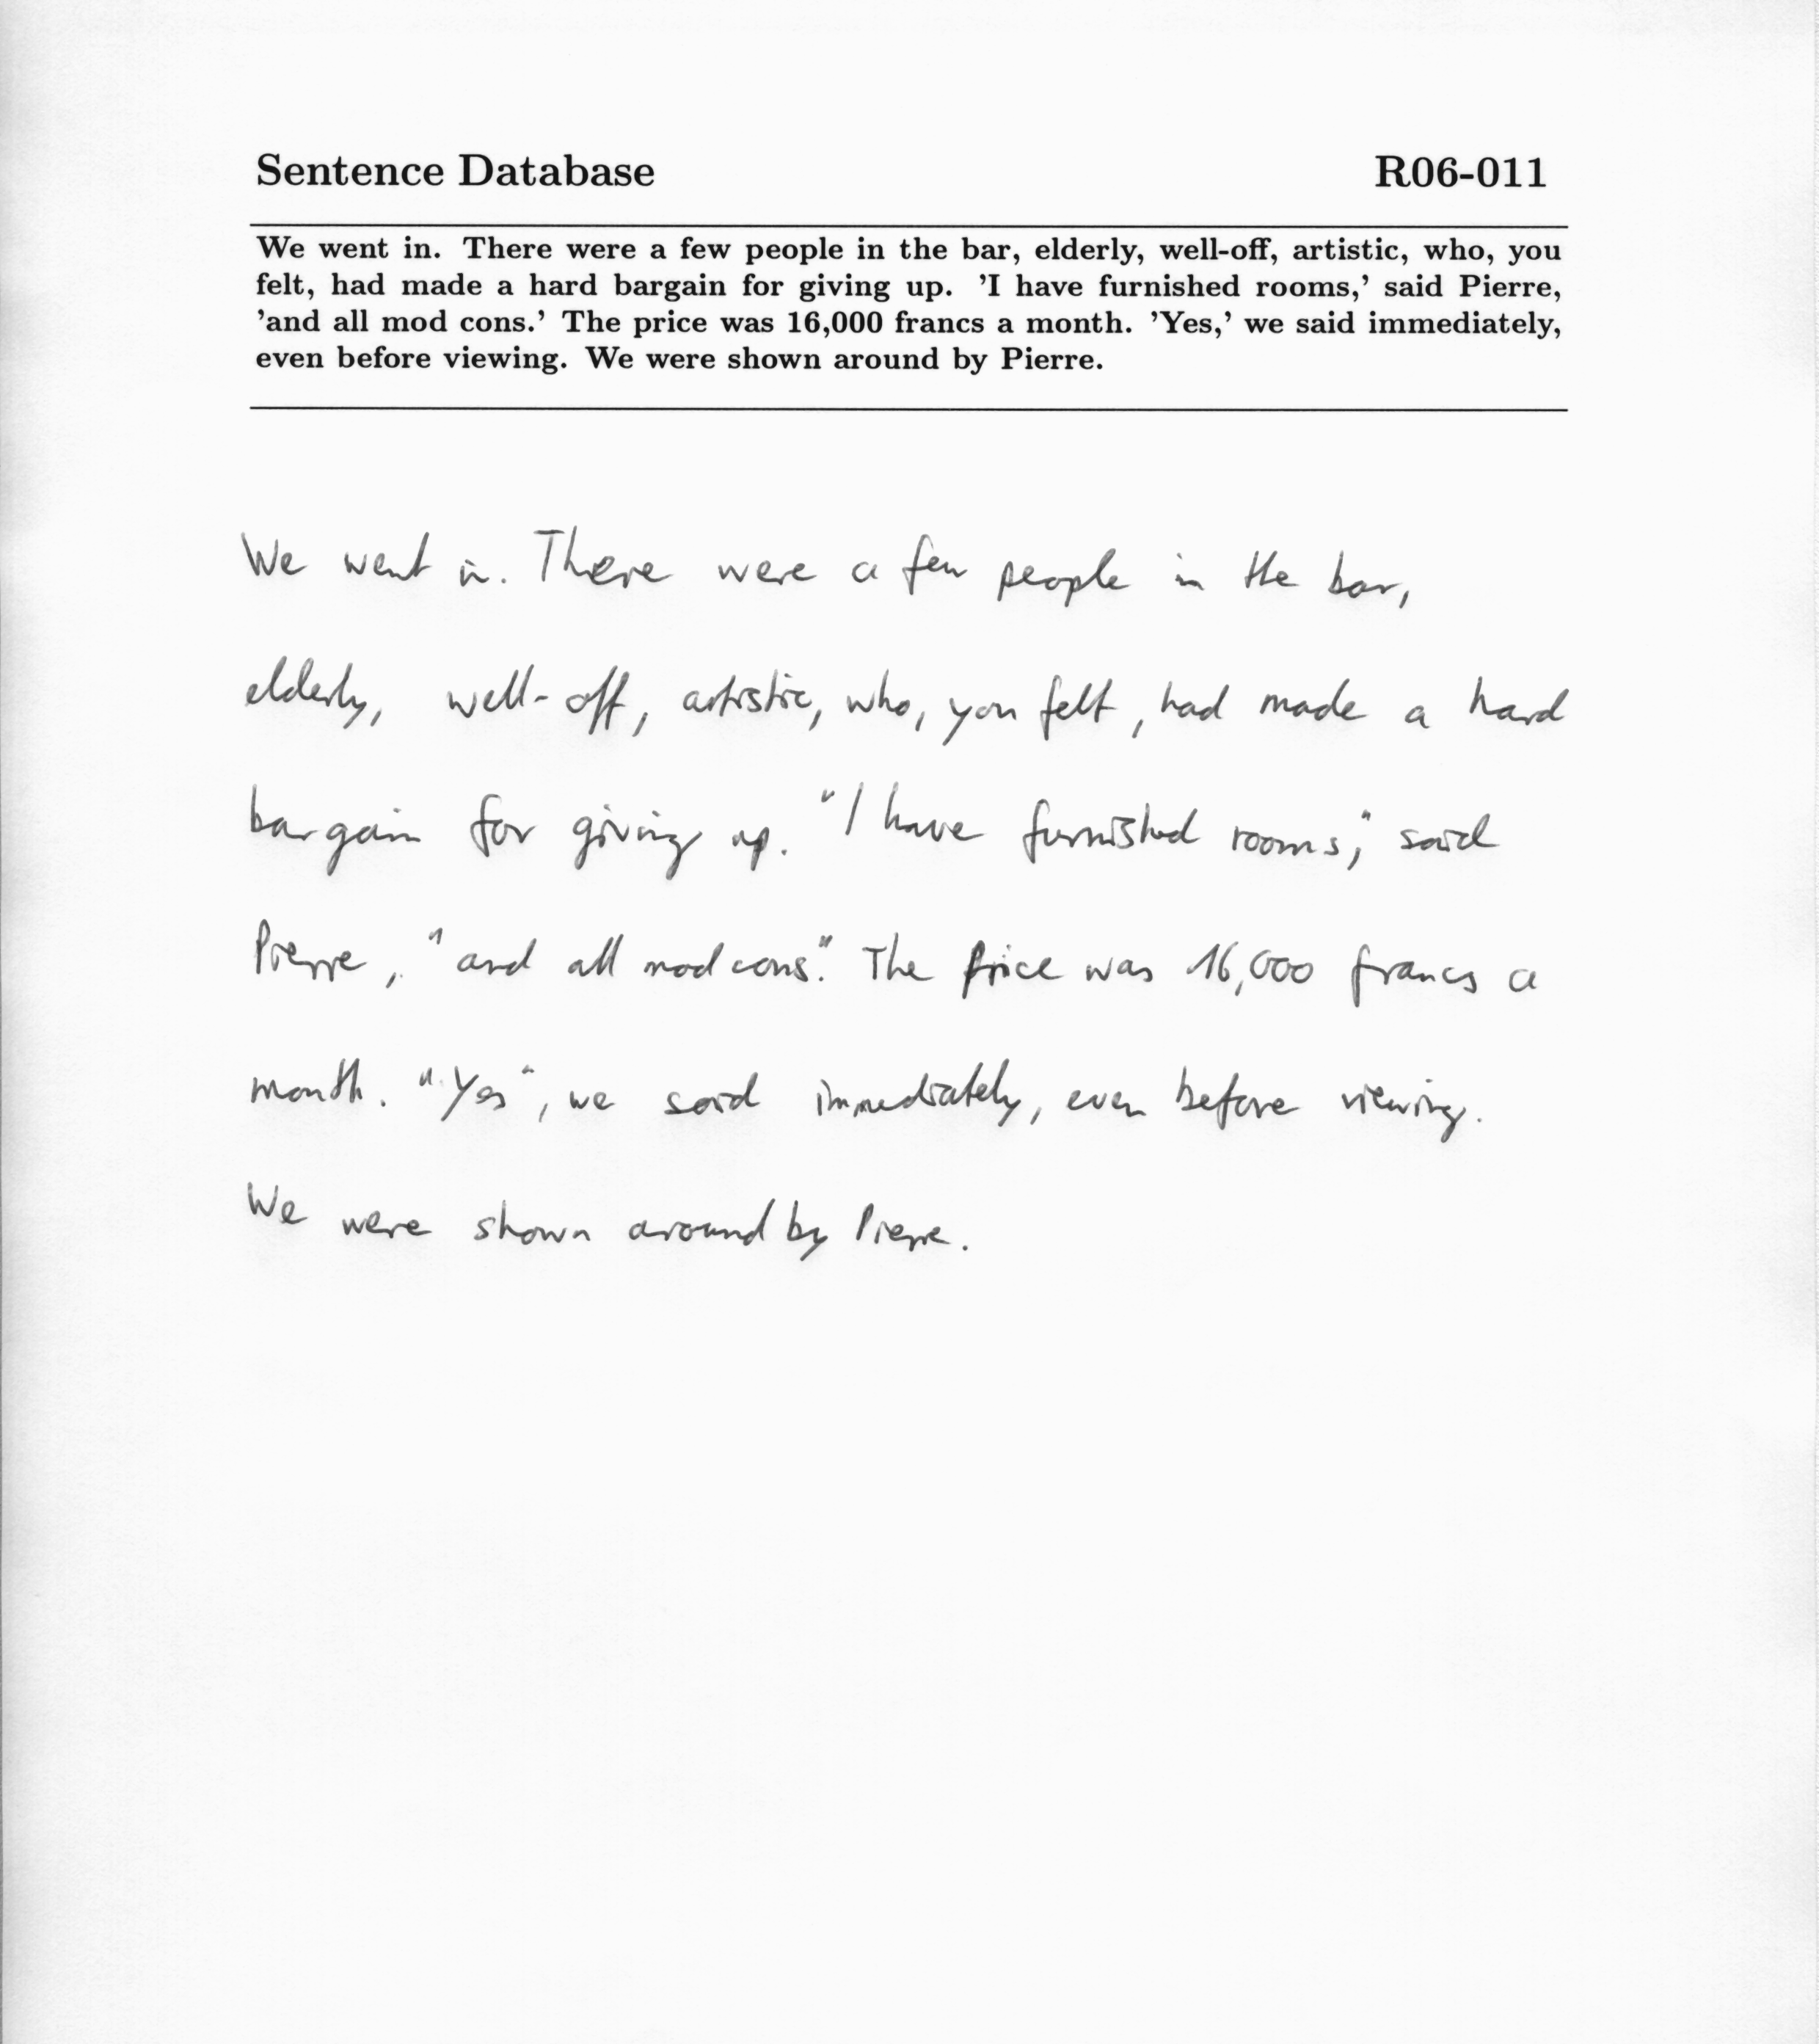 Sentence Database R06-011
We went in. There were a few people in the bar, elderly, well-off, artistic, who, you
felt, had made a hard bargain for giving up. 'I have furnished rooms,' said Pierre,
'and all mod cons.' The price was 16,000 francs a month. 'Yes,' we said immediately,
even before viewing. We were shown around by Pierre.
We went in. There were a few people in the bar,
elderly, well-off, artistic, who, you felt, had made a hard
bargain for giving up. "I have furnished rooms," said
Pierre, "and all mod cons." The price was 16,000 francs a
month. "Yes", we said immediately, even before viewing.
We were shown around by Pierre.